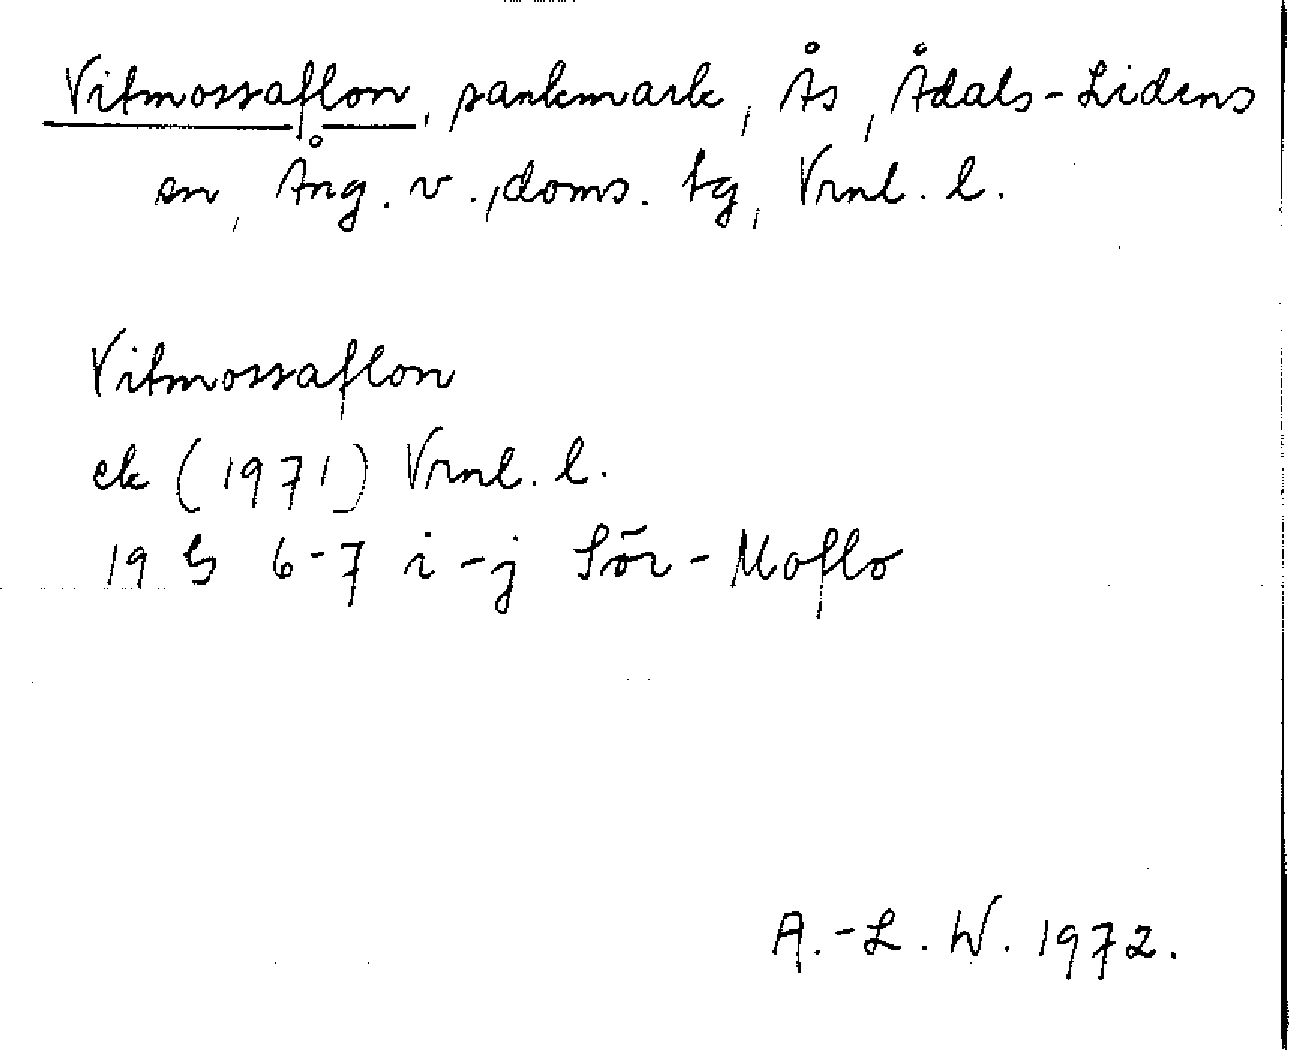 Vitmossaflon, sankmark, Ås, Ådals-Lidens
sn, Ång. v., doms. tg, Vrnl. l.
Vitmossaflon
ek (1971) Vrnl. l.
19 G 6-7 i-j Sör-Moflo
A.-L. W. 1972.